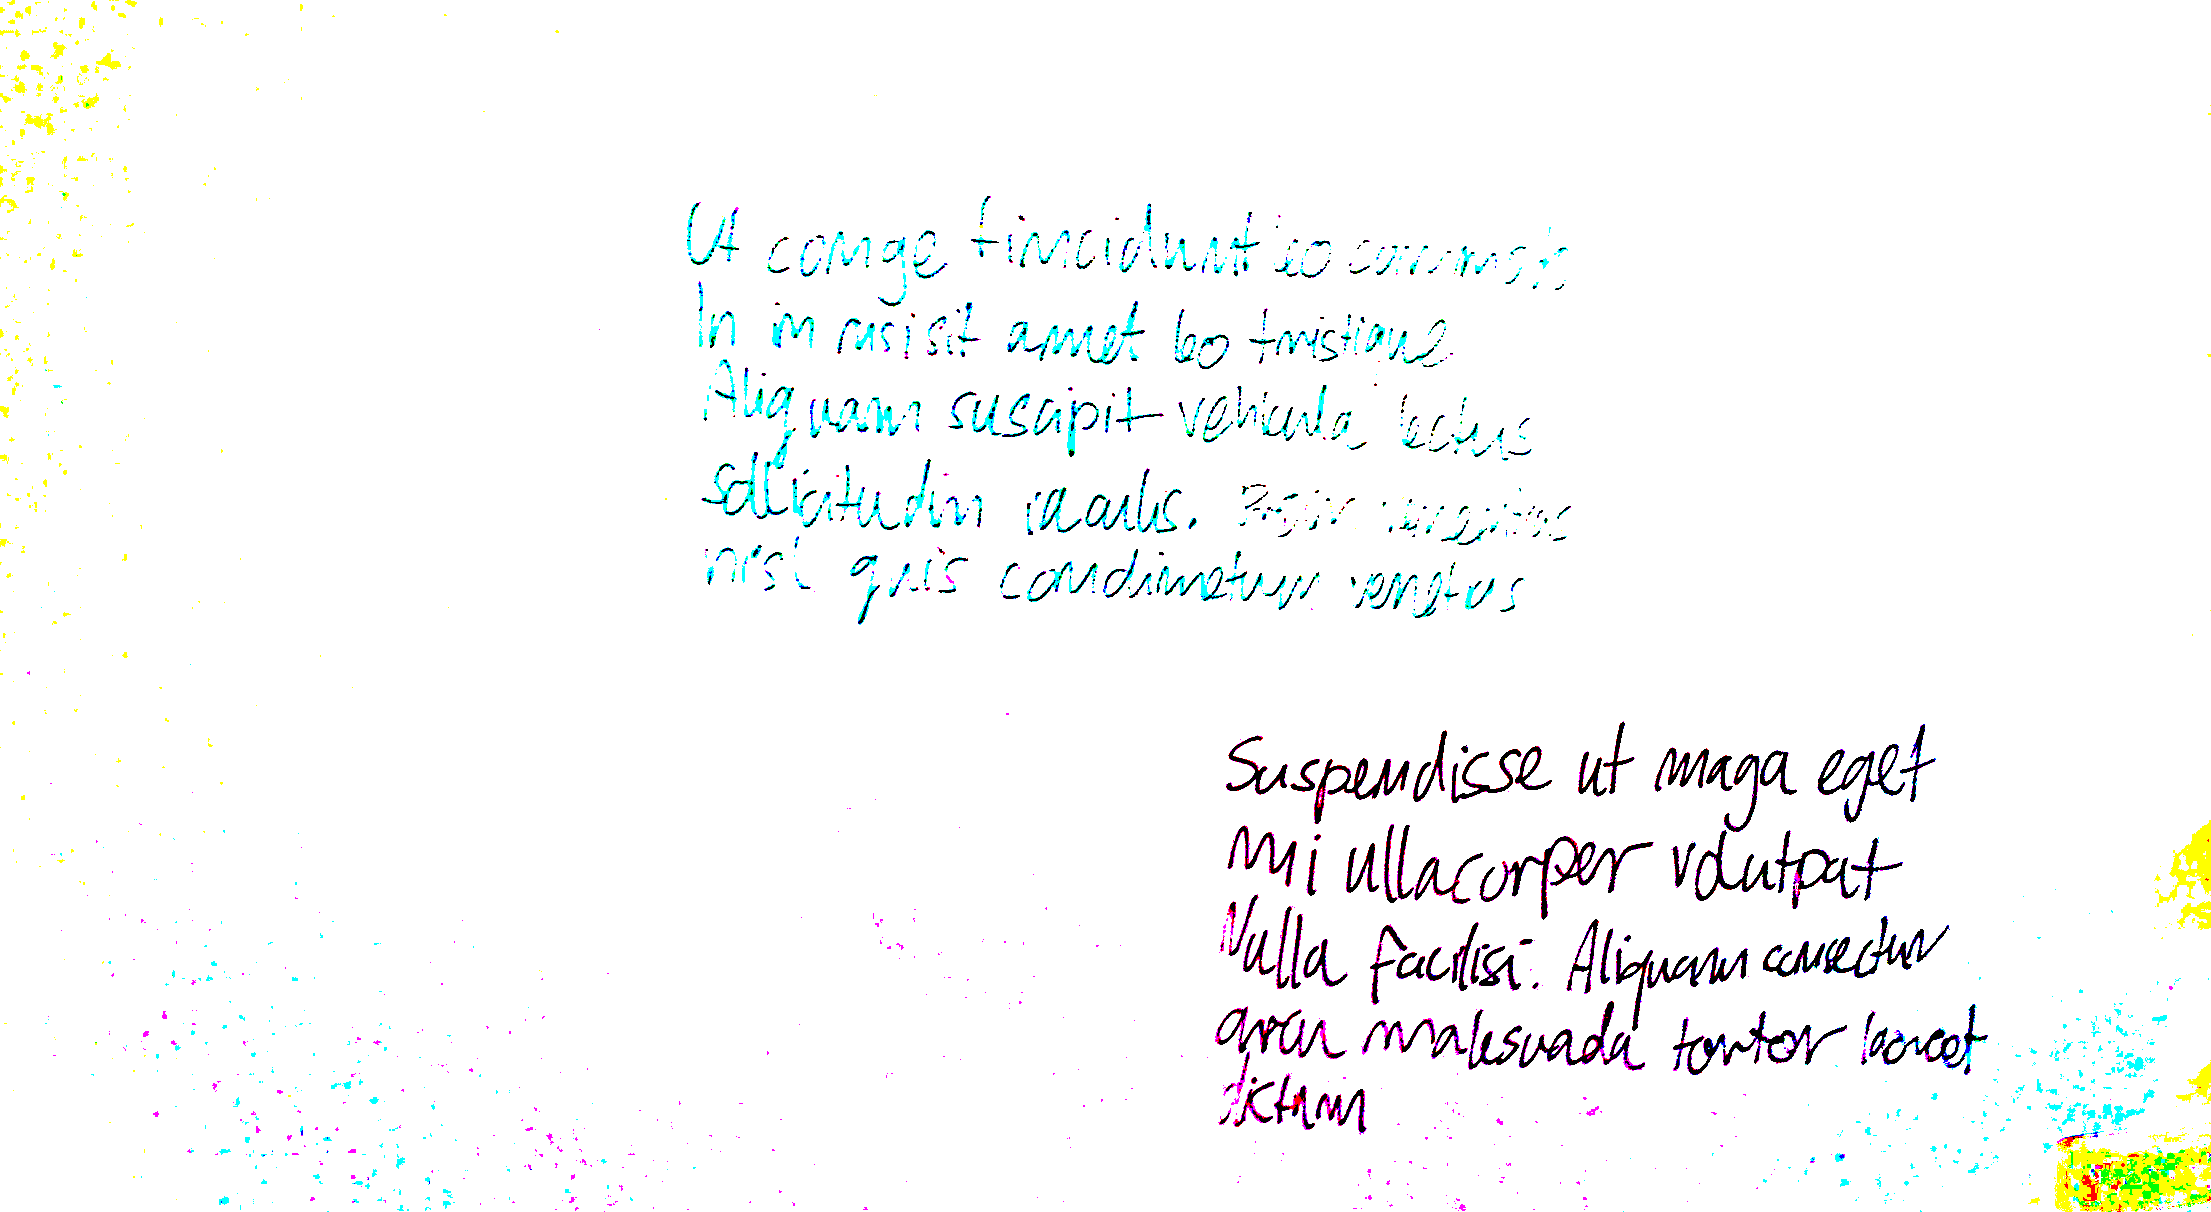 Ut conge tincidunt leo commsis
In in risi sit amet leo tristique
Aliquam suscipit vehicula lectus
sollicitudin iaculis.
nisl quis condimetum venetus
Suspendisse ut maga eget
mi ullacorper volutpat
Nulla facilisi. Aliquam consectur
arcu malesuada tortor laoreet
dictum